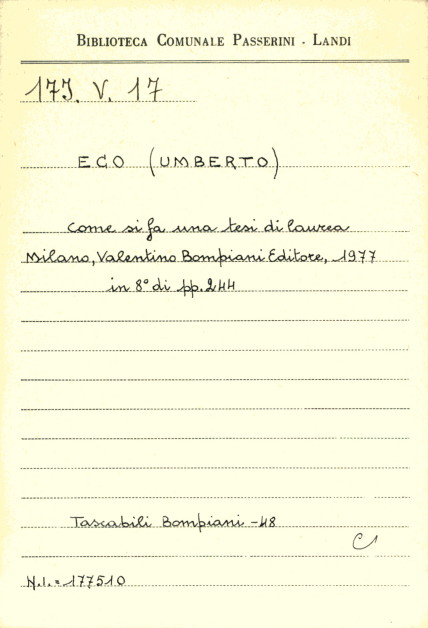 BIBLIOTECA COMUNALE PASSERINI - LANDI
17J. V. 17
ECO (UMBERTO)
Come si fa una tesi di laurea
Milano, Valentino Bompiani Editore, 1977
in 8° di pp. 244
Tascabili Bompiani - 48
C1
N.I. = 177510